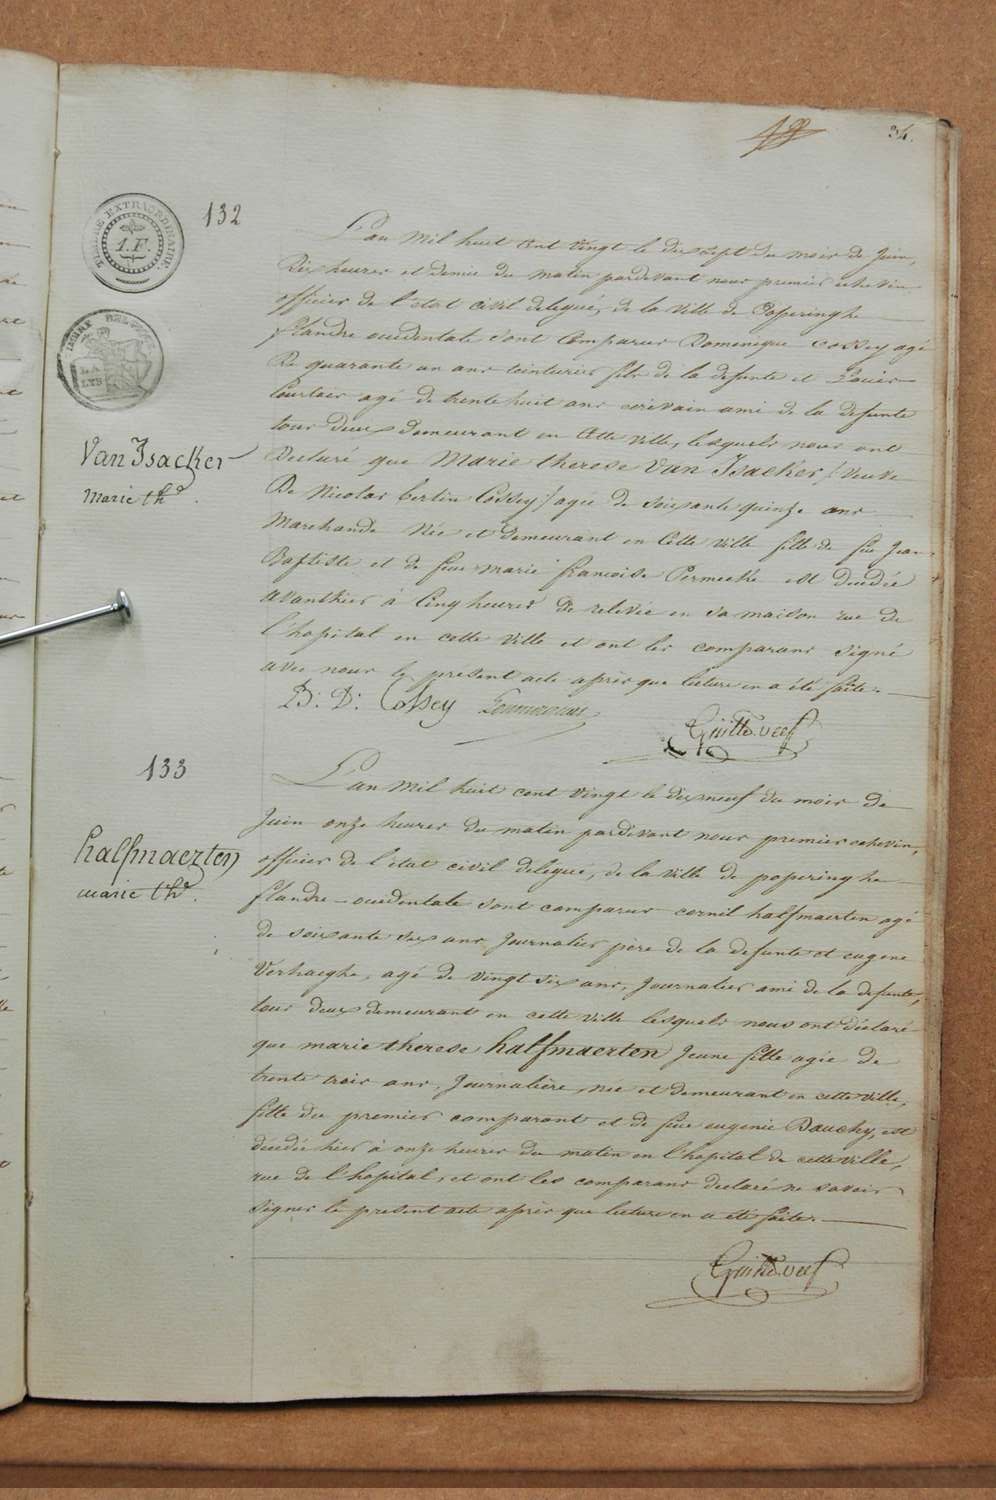 34.
TIMBRE EXTRAORDINAIRE
1.F.
132
L'an mil huit cent vingt le dix sept du mois de Juin,
dix heures et demie du matin pardevant nous premier echevin
officier de l'état civil delegué, de la ville de Poperinghe
flandre occidentale sont comparus Dominique Cossey agé
de quarante un ans teinturier fils de la defunte et Louis
agé de trente huit ans écrivain ami de la defunte
tous deux demeurant en cette ville, lesquels nous ont
declaré que Marie therese Van Isacker / veuve
de Nicolas bertin Cossey / agée de soixante quinze ans
marchande née et demeurant en cette ville fille de feu Jean
Baptiste et de feue marie francoise Permeke est decedée
avanthier à cinq heures de relevée en sa maison rue de
l'hopital en cette ville et ont les comparans signé
avec nous le présent acte après que lecture en a été faite.
Van Isacker
Marie thé.
D: D: Cossey
133
L'an mil huit cent vingt le dix neuf du mois de
Juin onze heures du matin pardevant nous premier echevin,
officier de l'état civil delegué, de la ville de poperinghe
flandre - occidentale sont comparus cornil halfmaerten agé
de soixante six ans Journalier père de la defunte et eugene
Verhaeghe, agé de vingt six ans, Journalier ami de la defunte,
tous deux demeurant en cette ville lesquels nous ont déclaré
que marie thérese halfmaerten Jeune fille agée de
trente trois ans, Journalière, née et demeurant en cette ville,
fille du premier comparant et de feue eugenie Bauchy, est
decedée hier à onze heures du matin en l'hopital de cette ville,
rue de l'hopital, et ont les comparans declaré ne savoir
signer le present acte après que lecture en a été faite.
halfmaerten
marie thé.